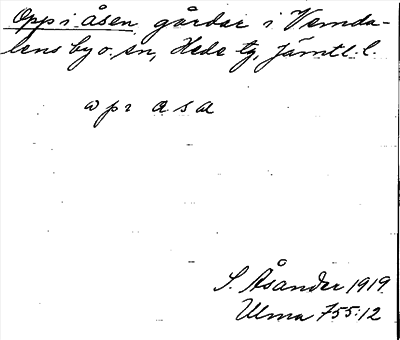 Opp i åsen gårdar i Vemda-
lens by o. sn, Hede tg, Jämtl. l.
a p ɪ a s a
S. Åsander 1919.
Ulma 755:12